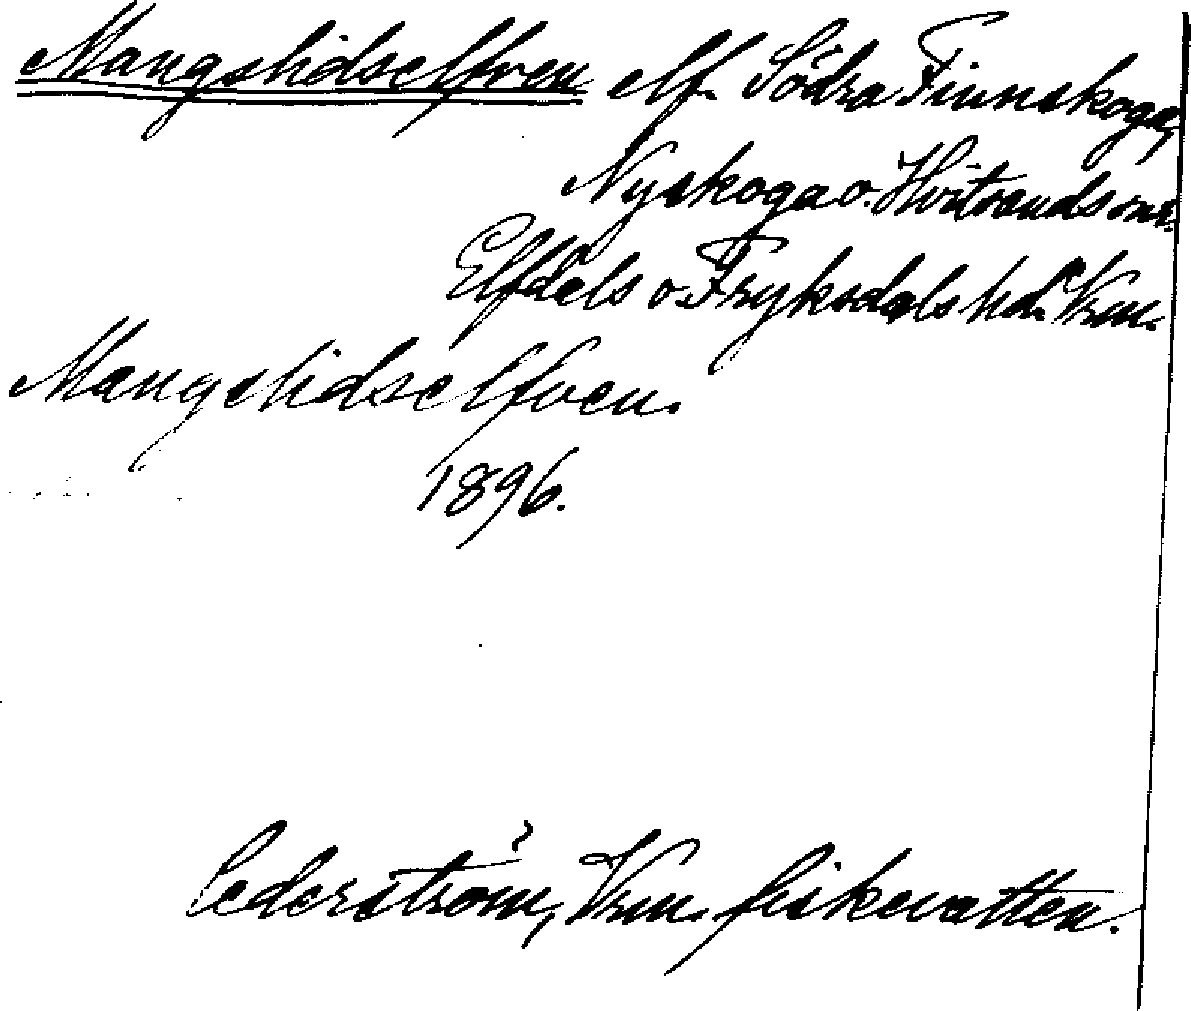 Mangslidselfven elf. Södra Finnskoga,
Nyskoga o. Hvitsands snr.
Elfdals o. Fryksdals hd. Vrm.
Mangslidselfven.
1896.
Cederström, Vrm. fiskevatten.